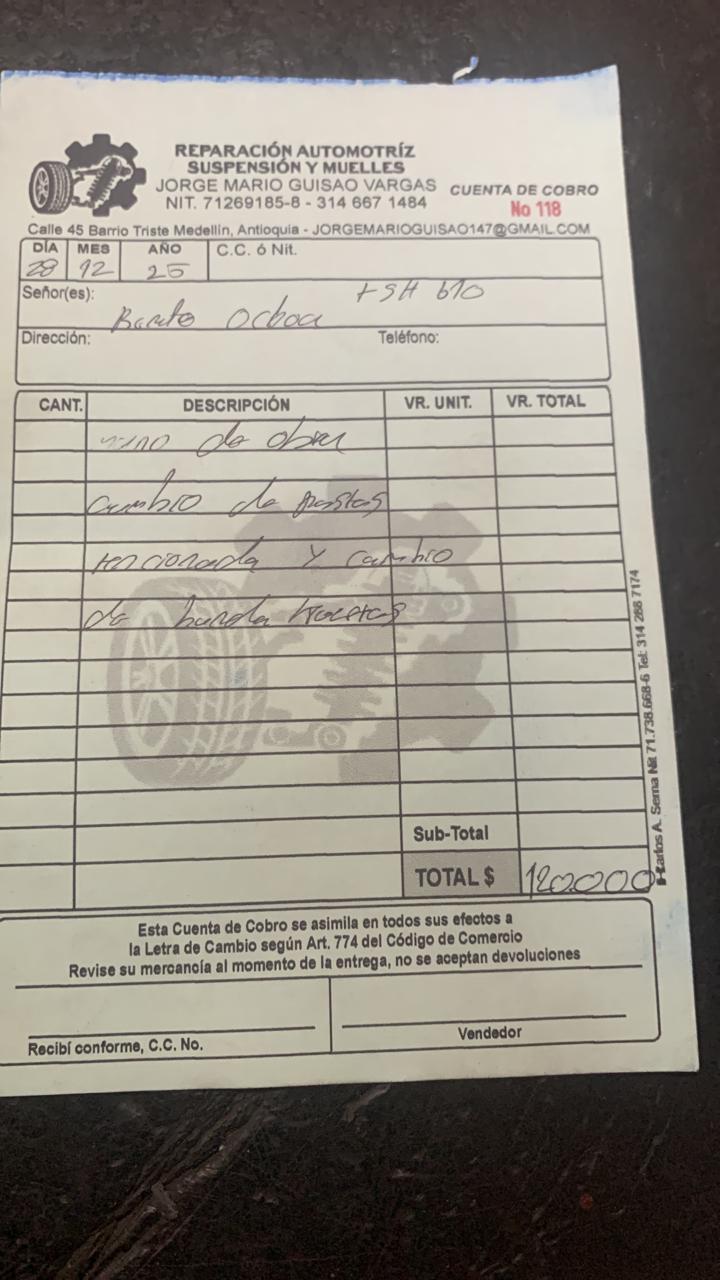 REPARACIÓN AUTOMOTRÍZ
SUSPENSIÓN Y MUELLES
JORGE MARIO GUISAO VARGAS
NIT. 71269185-8 - 314 667 1484
CUENTA DE COBRO
No 118
Calle 45 Barrio Triste Medellín, Antioquia - JORGEMARIOGUISAO147@GMAIL.COM
DÍA MES AÑO C.C. ó Nit.
28 12 25
Señor(es): Ochoa
Dirección: Teléfono:
CANT. DESCRIPCIÓN VR. UNIT. VR. TOTAL
mano de obra
cambio de pastas
y cambio
de banda
Sub-Total
TOTAL $ 120.000
Esta Cuenta de Cobro se asimila en todos sus efectos a
la Letra de Cambio según Art. 774 del Código de Comercio
Revise su mercancía al momento de la entrega, no se aceptan devoluciones
Recibí conforme, C.C. No.
Vendedor
Carlos A. Serna Nit 71.738.668-6 Tel: 314 288 7174